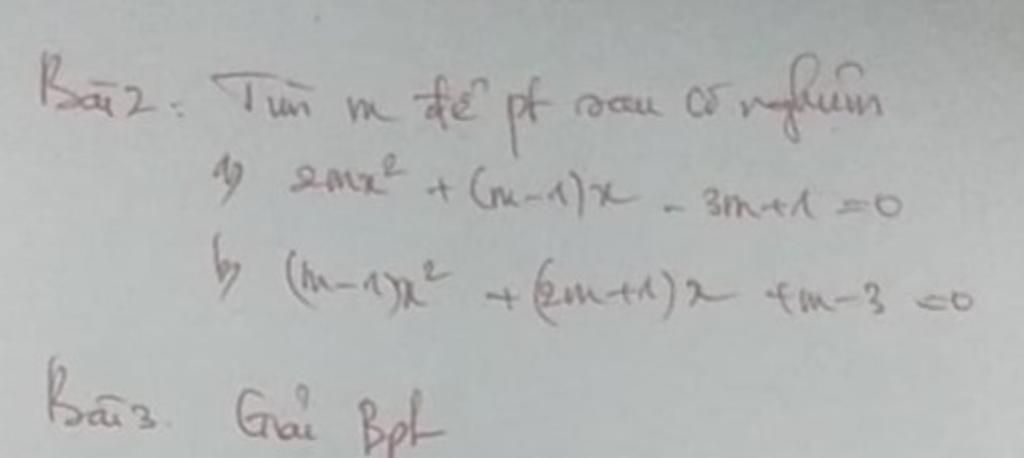 Bài 2: Tìm m để pt sau có nghiệm
a) 2mx² + (m-1)x - 3m+1 = 0
b) (m-1)x² + (2m+1)x + m-3 = 0
Bài 3. Giải Bpt